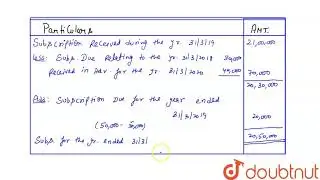 Particulars AMT.
Subscription Received during the yr. 31/3/19 21,00,000
Less: Subs. Due Relating to the yr. 31/3/2018
received in Adv. for the yr. 31/3/2020 40,000 70,000
20,30,000
Add: Subscription Due for the year ended
31/3/2019 20,000
20,50,000
Subs. for the yr. ended 31/3/
doubtnut